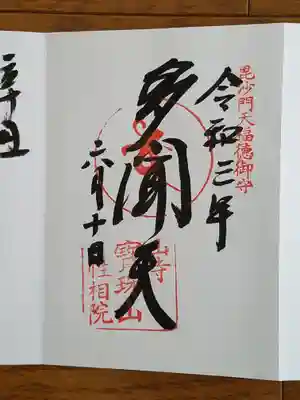 毘沙門天福徳御守
令和三年
多聞天
六月十日
山寺
寶珠山
性相院